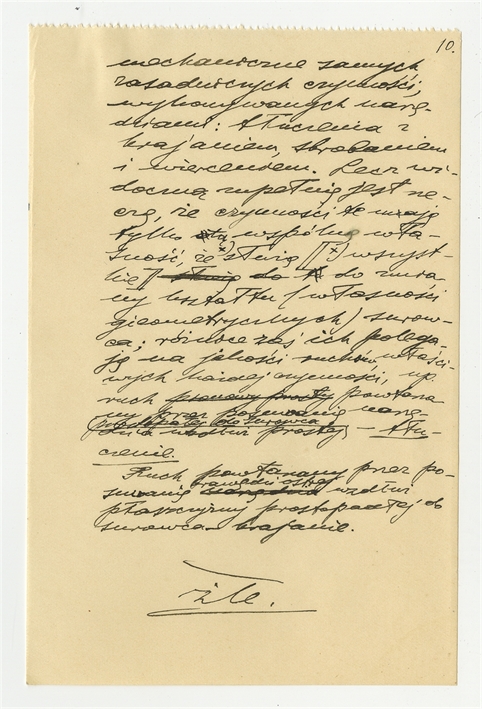 10.
mechaniczne samych
zasadniczych czynności,
wykonywanych narzę-
dziami: tłuczenia z
krajaniem, skrobaniem
i wierceniem. Lecz wi-
doczną zupełnie jest rze-
czą, że czynności te mają
tylko tę wspólną wła-
sność, że służą wszyst-
kie do zmia-
ny kształtu (własności
gieometrycznych) surow-
ca; różnice zaś ich polega-
ją na jakości ruchów właści-
wych każdej czynności, np.
ruch powtarza-
ny przez posuwanie narzę-
dzia wzdłuż prostej
prostopadłej do surowca — tłu-
czenie.
Ruch powtarzany przez po-
suwanie krawędzi ostrej wzdłuż
płaszczyzny prostopadłej do
surowca — krajanie.
Źle.